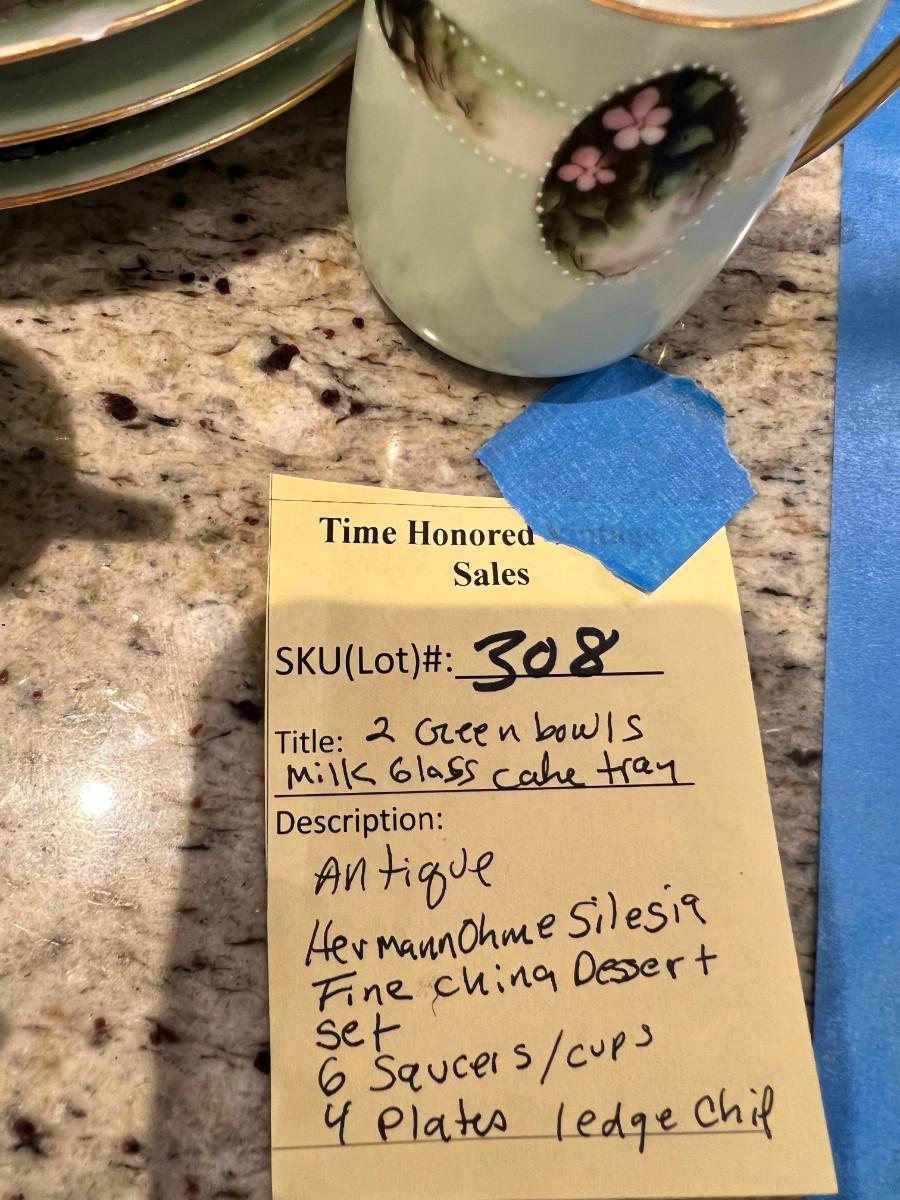 Time Honored Vintage
Sales
SKU(Lot)#: 308
Title: 2 Green bowls
Milk Glass cake tray
Description:
Antique
Hermann Ohme Silesia
Fine china Dessert
set
6 Saucers/cups
4 Plates 1edge Chip